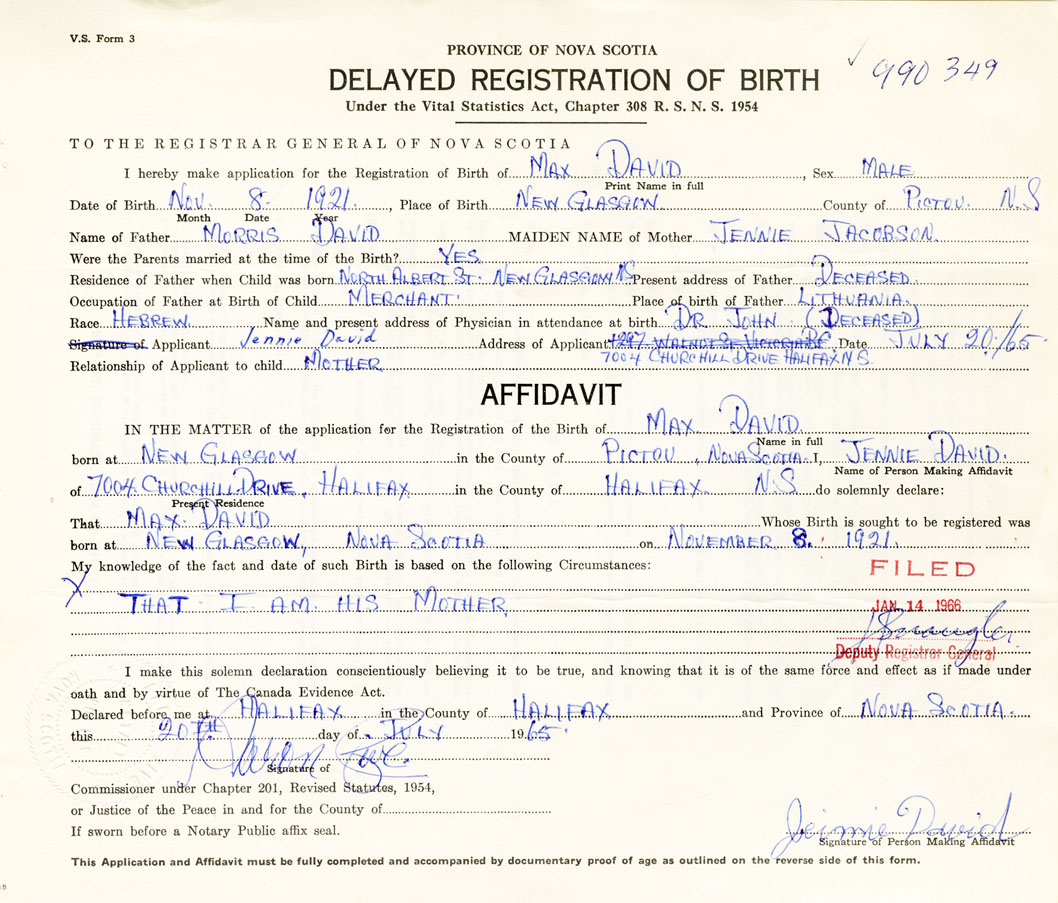 V.S. Form 3
PROVINCE OF NOVA SCOTIA
990 349
DELAYED REGISTRATION OF BIRTH
Under the Vital Statistics Act, Chapter 308 R. S. N. S. 1954
TO THE REGISTRAR GENERAL OF NOVA SCOTIA
I hereby make application for the Registration of Birth of MAX DAVID, Sex MALE
Print Name in full
Date of Birth NOV. 8 1921, Place of Birth NEW GLASGOW County of PICTOU N.S
Month Date Year
Name of Father MORRIS DAVID MAIDEN NAME of Mother JENNIE JACOBSON
Were the Parents married at the time of the Birth? YES
Residence of Father when Child was born NORTH ALBERT ST. NEW GLASGOW NS Present address of Father DECEASED
Occupation of Father at Birth of Child MERCHANT Place of birth of Father LITHUANIA
Race HEBREW Name and present address of Physician in attendance at birth DR JOHN (DECEASED)
Signature of Applicant Jennie David Address of Applicant WALNUT ST. VICTORIA BC Date JULY 20/65
7004 CHURCHILL DRIVE HALIFAX N S.
Relationship of Applicant to child MOTHER
AFFIDAVIT
IN THE MATTER of the application for the Registration of the Birth of MAX DAVID
Name in full
born at NEW GLASGOW in the County of PICTOU, NOVA SCOTIA I, JENNIE DAVID
Name of Person Making Affidavit
of 7004 CHURCHILL DRIVE, HALIFAX in the County of HALIFAX N.S do solemnly declare:
Present Residence
That MAX DAVID Whose Birth is sought to be registered was
born at NEW GLASGOW, NOVA SCOTIA on NOVEMBER 8. 1921.
My knowledge of the fact and date of such Birth is based on the following Circumstances:
FILED
X
THAT I AM HIS MOTHER
JAN. 14 1966
Deputy Registrar General
I make this solemn declaration conscientiously believing it to be true, and knowing that it is of the same force and effect as if made under
oath and by virtue of The Canada Evidence Act.
Declared before me at HALIFAX in the County of HALIFAX and Province of NOVA SCOTIA.
this 20TH day of JULY 1965.
Signature of
Commissioner under Chapter 201, Revised Statutes, 1954,
or Justice of the Peace in and for the County of
If sworn before a Notary Public affix seal.
Jennie David
Signature of Person Making Affidavit
This Application and Affidavit must be fully completed and accompanied by documentary proof of age as outlined on the reverse side of this form.